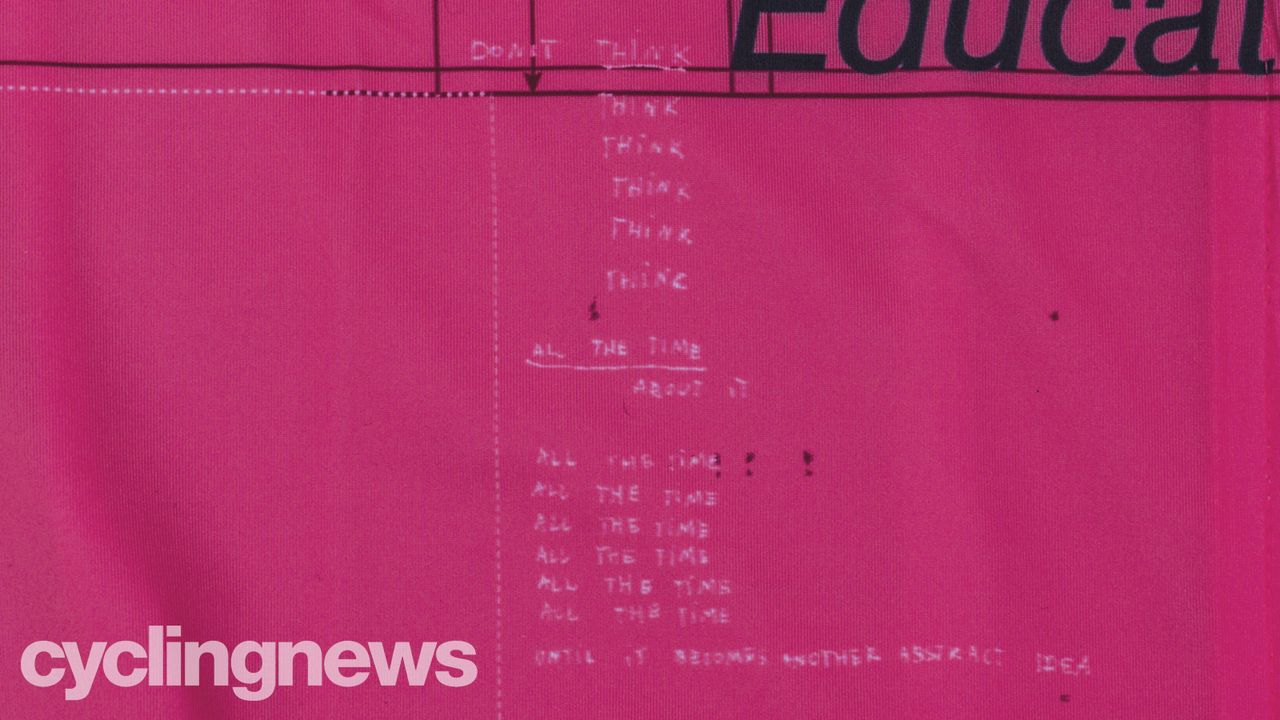 Educat
DON'T THINK
THINK
THINK
THINK
THINK
THINK
AL THE TIME
ABOUT IT
ALL THE TIME
ALL THE TIME
ALL THE TIME
ALL THE TIME
ALL THE TIME
ALL THE TIME
UNTIL IT BECOMES ANOTHER ABSTRACT IDEA
cyclingnews